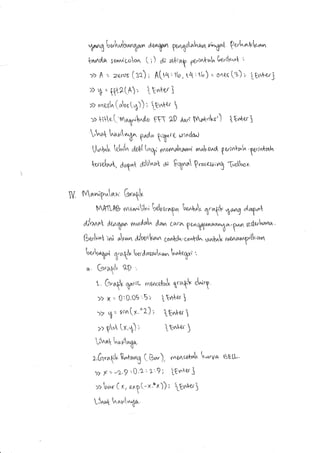 yang berhubungan dengan pengolahan sinyal. Perhatikan
tanda semicolon (;) di setiap perintah berikut :
>> A = zeros (32); A(14:16, 14:16) = ones (3); {Enter}
>> y = fft2(A); {Enter}
>> mesh (abs(y)); {Enter}
>> title ('Magnitudo FFT 2D dari Matriks') {Enter}
Lihat hasilnya pada figure window
Untuk lebih detil lagi memahami maksud perintah-perintah
tersebut, dapat dilihat di Signal Processing Toolbox
IV. Manipulasi Grafik
MATLAB memiliki beberapa bentuk grafik yang dapat
dibuat dengan mudah dan cara penggunaannya pun sederhana.
Berikut ini akan diberikan contoh-contoh untuk menampilkan
berbagai grafik berdasarkan kategori :
a. Grafik 2D :
1. Grafik garis, mencetak grafik chirp.
>> x = 0:0.05:5; {Enter}
>> y = sin(x.^2); {Enter}
>> plot (x,y); {Enter}
Lihat hasilnya.
2. Grafik Batang (Bar), mencetak kurva BELL.
>> x = -2.9:0.2:2.9; {Enter}
>> bar (x, exp(-x.*x)); {Enter}
Lihat hasilnya.